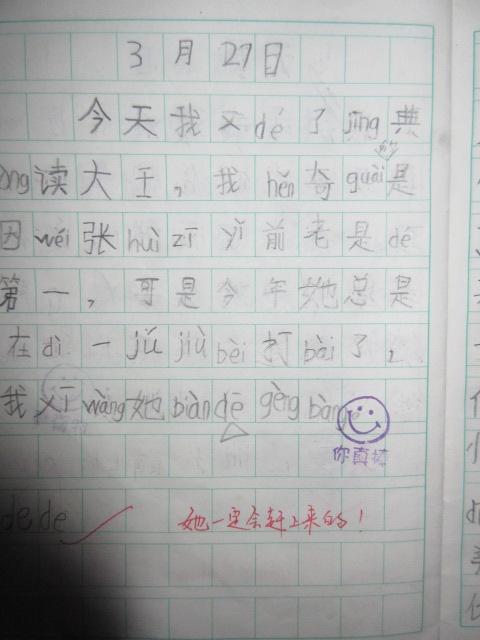 3月27日
今天我又dé了jīng典
òng读大王，我hěn奇guài的是
因wéi张huì zī yǐ前老是dé
第一，可是今年她总是
在dì一jǔ jiù bèi打bài了，
我xī wàng她biàn dē gèng bàng
你真棒
de de
她一定会赶上来的！